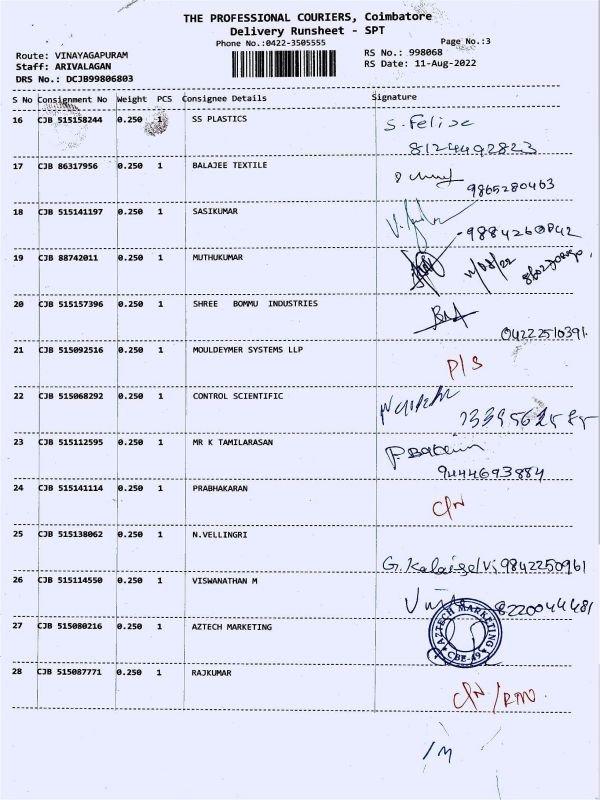 THE PROFESSIONAL COURIERS, Coimbatore
Delivery Runsheet - SPT
Phone No.:0422-3505555
Page No.:3
Route: VINAYAGAPURAM
RS No.: 998068
Staff: ARIVALAGAN
RS Date: 11-Aug-2022
DRS No.: DCJB99806803
S No Consignment No Weight PCS Consignee Details Signature
16 CJB 515158244 0.250 1 SS PLASTICS S. Felise
8124492823
17 CJB 86317956 0.250 1 BALAJEE TEXTILE
9865280463
18 CJB 515141197 0.250 1 SASIKUMAR
9884260842
19 CJB 88742011 0.250 1 MUTHUKUMAR 11/08/22
20 CJB 515157396 0.250 1 SHREE BOMMU INDUSTRIES
04222510391
21 CJB 515092516 0.250 1 MOULDEYMER SYSTEMS LLP P/S
22 CJB 515068292 0.250 1 CONTROL SCIENTIFIC
23 CJB 515112595 0.250 1 MR K TAMILARASAN
9444693884
24 CJB 515141114 0.250 1 PRABHAKARAN C/N
25 CJB 515138062 0.250 1 N.VELLINGRI
G. Kalaiselvi 9842250961
26 CJB 515114550 0.250 1 VISWANATHAN M
8220044481
27 CJB 515080216 0.250 1 AZTECH MARKETING AZTECH MARKETING CBE-49
28 CJB 515087771 0.250 1 RAJKUMAR
C/N